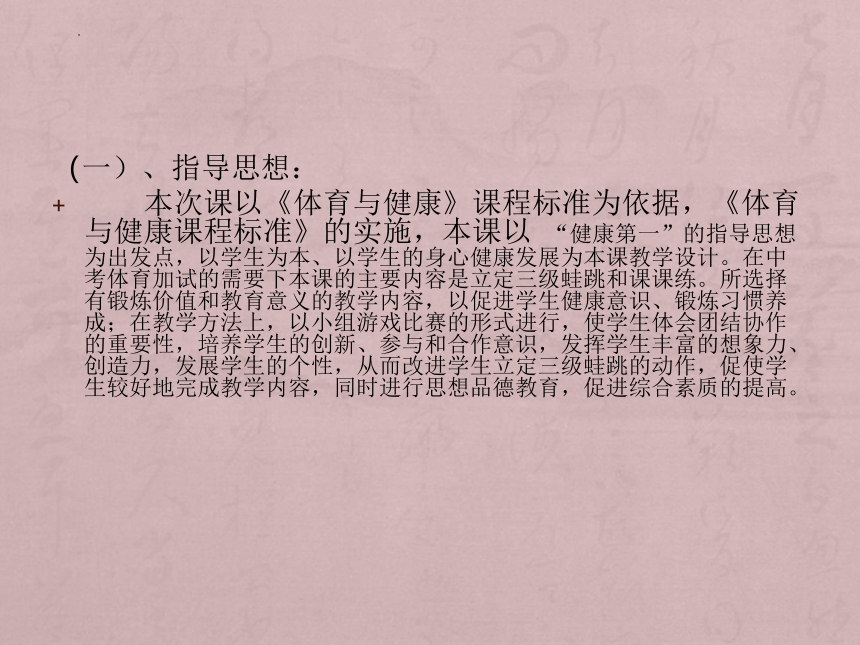 (一）、指导思想：
+ 本次课以《体育与健康》课程标准为依据，《体育
与健康课程标准》的实施，本课以 “健康第一”的指导思想
为出发点，以学生为本、以学生的身心健康发展为本课教学设计。在中
考体育加试的需要下本课的主要内容是立定三级蛙跳和课课练。所选择
有锻炼价值和教育意义的教学内容，以促进学生健康意识、锻炼习惯养
成；在教学方法上，以小组游戏比赛的形式进行，使学生体会团结协作
的重要性，培养学生的创新、参与和合作意识，发挥学生丰富的想象力、
创造力，发展学生的个性，从而改进学生立定三级蛙跳的动作，促使学
生较好地完成教学内容，同时进行思想品德教育，促进综合素质的提高。